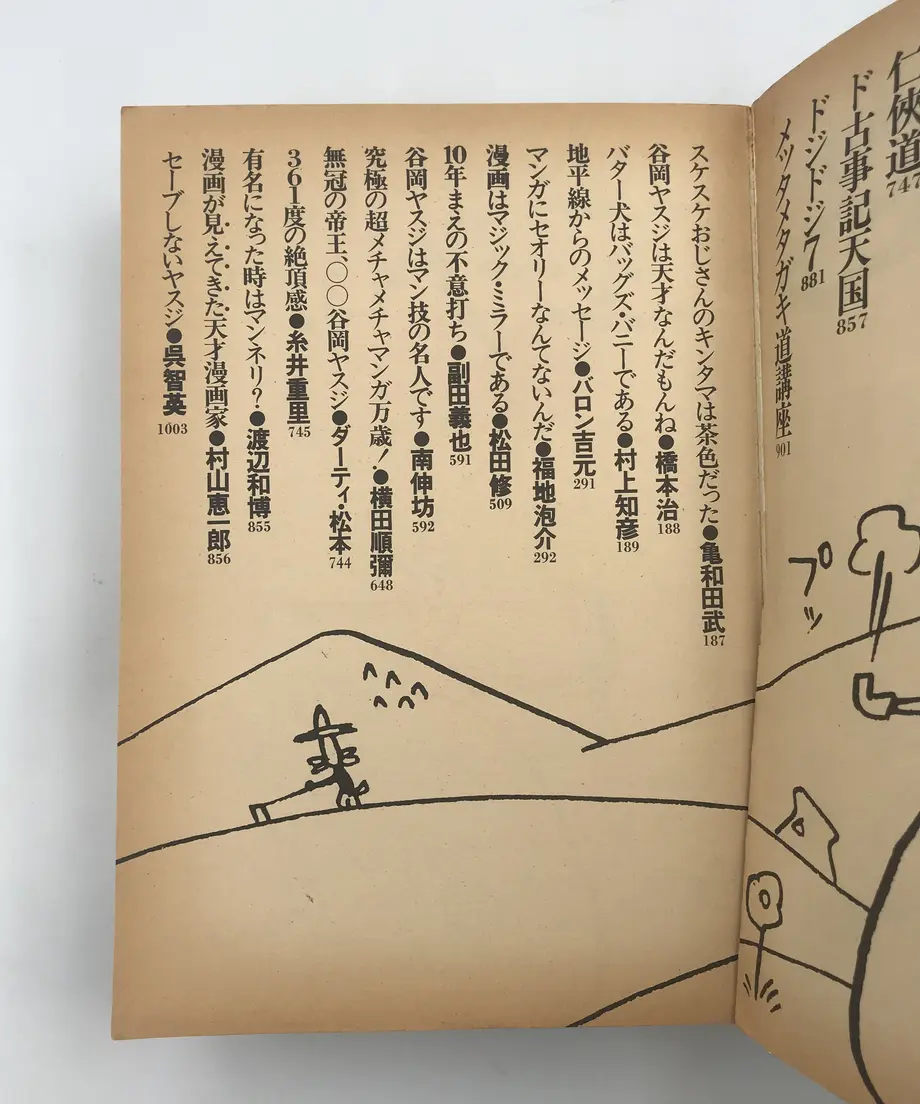 仁侠道747
ド古事記天国857
ドジドジ7 881
メッタメタガキ道講座901
スケスケおじさんのキンタマは茶色だった●亀和田武187
谷岡ヤスジは天才なんだもんね●橋本治188
バター犬はバッグズ・バニーである●村上知彦189
地平線からのメッセージ●バロン吉元291
マンガにセオリーなんてないんだ●福地泡介292
漫画はマジック・ミラーである●松田修509
10年まえの不意打ち●副田義也591
谷岡ヤスジはマン技の名人です●南伸坊592
究極の超メチャメチャマンガ万歳!●横田順彌648
無冠の帝王、〇〇谷岡ヤスジ●ダーティ・松本744
361度の絶頂感●糸井重里745
有名になった時はマンネリ?●渡辺和博855
漫画が見えてきた天才漫画家●村山恵一郎856
セーブしないヤスジ●呉智英1003
プッ